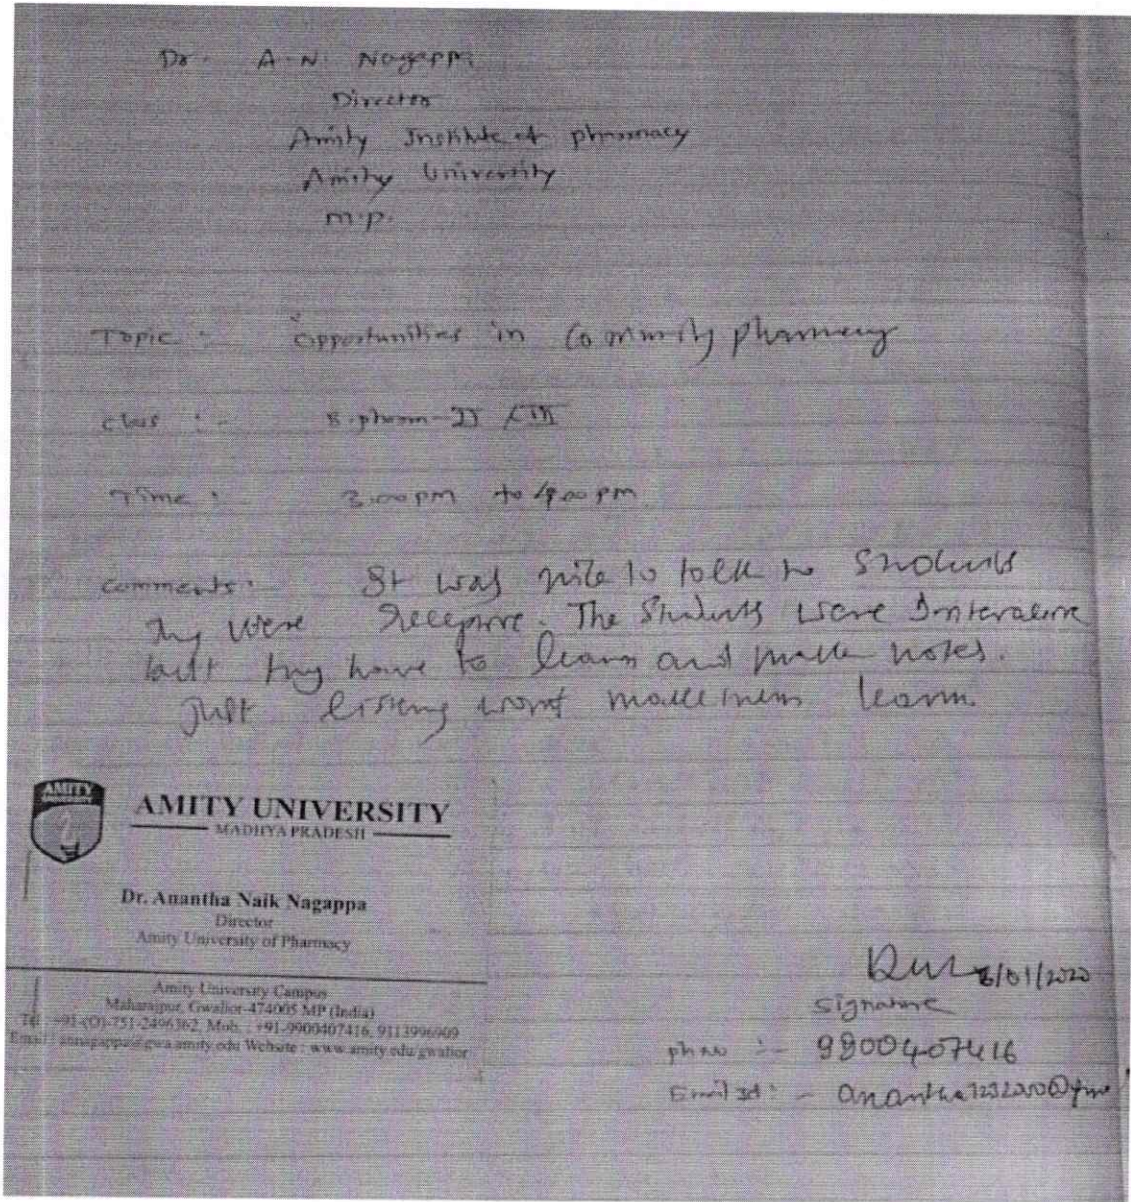 Dr. A.N. Nagappa
Director
Amity Institute of pharmacy
Amity University
M.P.
Topic :- Opportunities in Commity pharmacy
Class :- B.pharm-
Time : 3.00pm to 4.00pm
Comments: It was nice to talk to Students
They were Receptive. The Students were Interactive
but they have to learn and make notes.
Just listing wont make them learn.
AMITY
AMITY UNIVERSITY
MADHYA PRADESH
Dr. Anantha Naik Nagappa
Director
Amity University of Pharmacy
Amity University Campus
Maharajpur, Gwalior-474005 MP (India)
Tel : +91-(O)-751-2496362, Mob. : +91-9900407416, 9113996909
Email : annagappa@gwa.amity.edu Website : www.amity.edu/gwalior
6/01/2020
Signature
phone :- 9900407416
Email Id :-